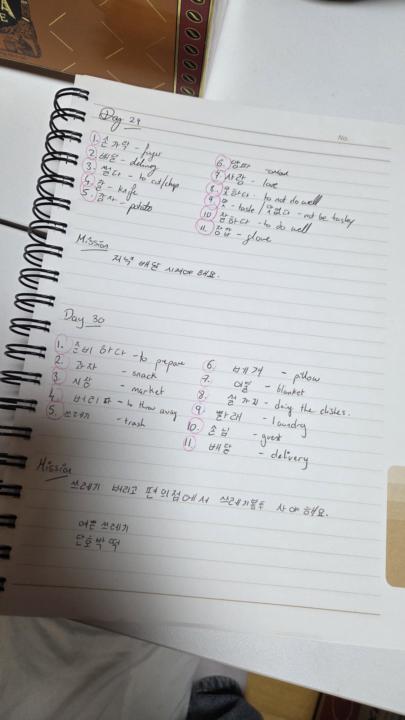 No.
Day 29
1. 손가락 - finger
2. 배달 - delivery
3. 썰다 - to cut/chop
4. 칼 - knife
5. 감자 - potato
6. 양파
7. 사랑 - love
8. 못하다 - to not do well
9. 맛 - taste / 맛없다 - not be tastey
10. 잘하다 - to do well
11. 장갑 - glove
Mission
저녁 배달 시켜야 해요.
Day 30
1. 준비하다 - to prepare
2. 과자 - snack
3. 시장 - market
4. 버리다 - to throw away
5. 쓰레기 - trash
6. 베개 - pillow
7. 이불 - blanket
8. 설거지 - doing the dishes.
9. 빨래 - laundry
10. 손님 - guest
11 배달 - delivery
Mission
쓰레기 버리고 편의점에서 쓰레기봉투 사야 해요.
쓰레기
단호박 떡